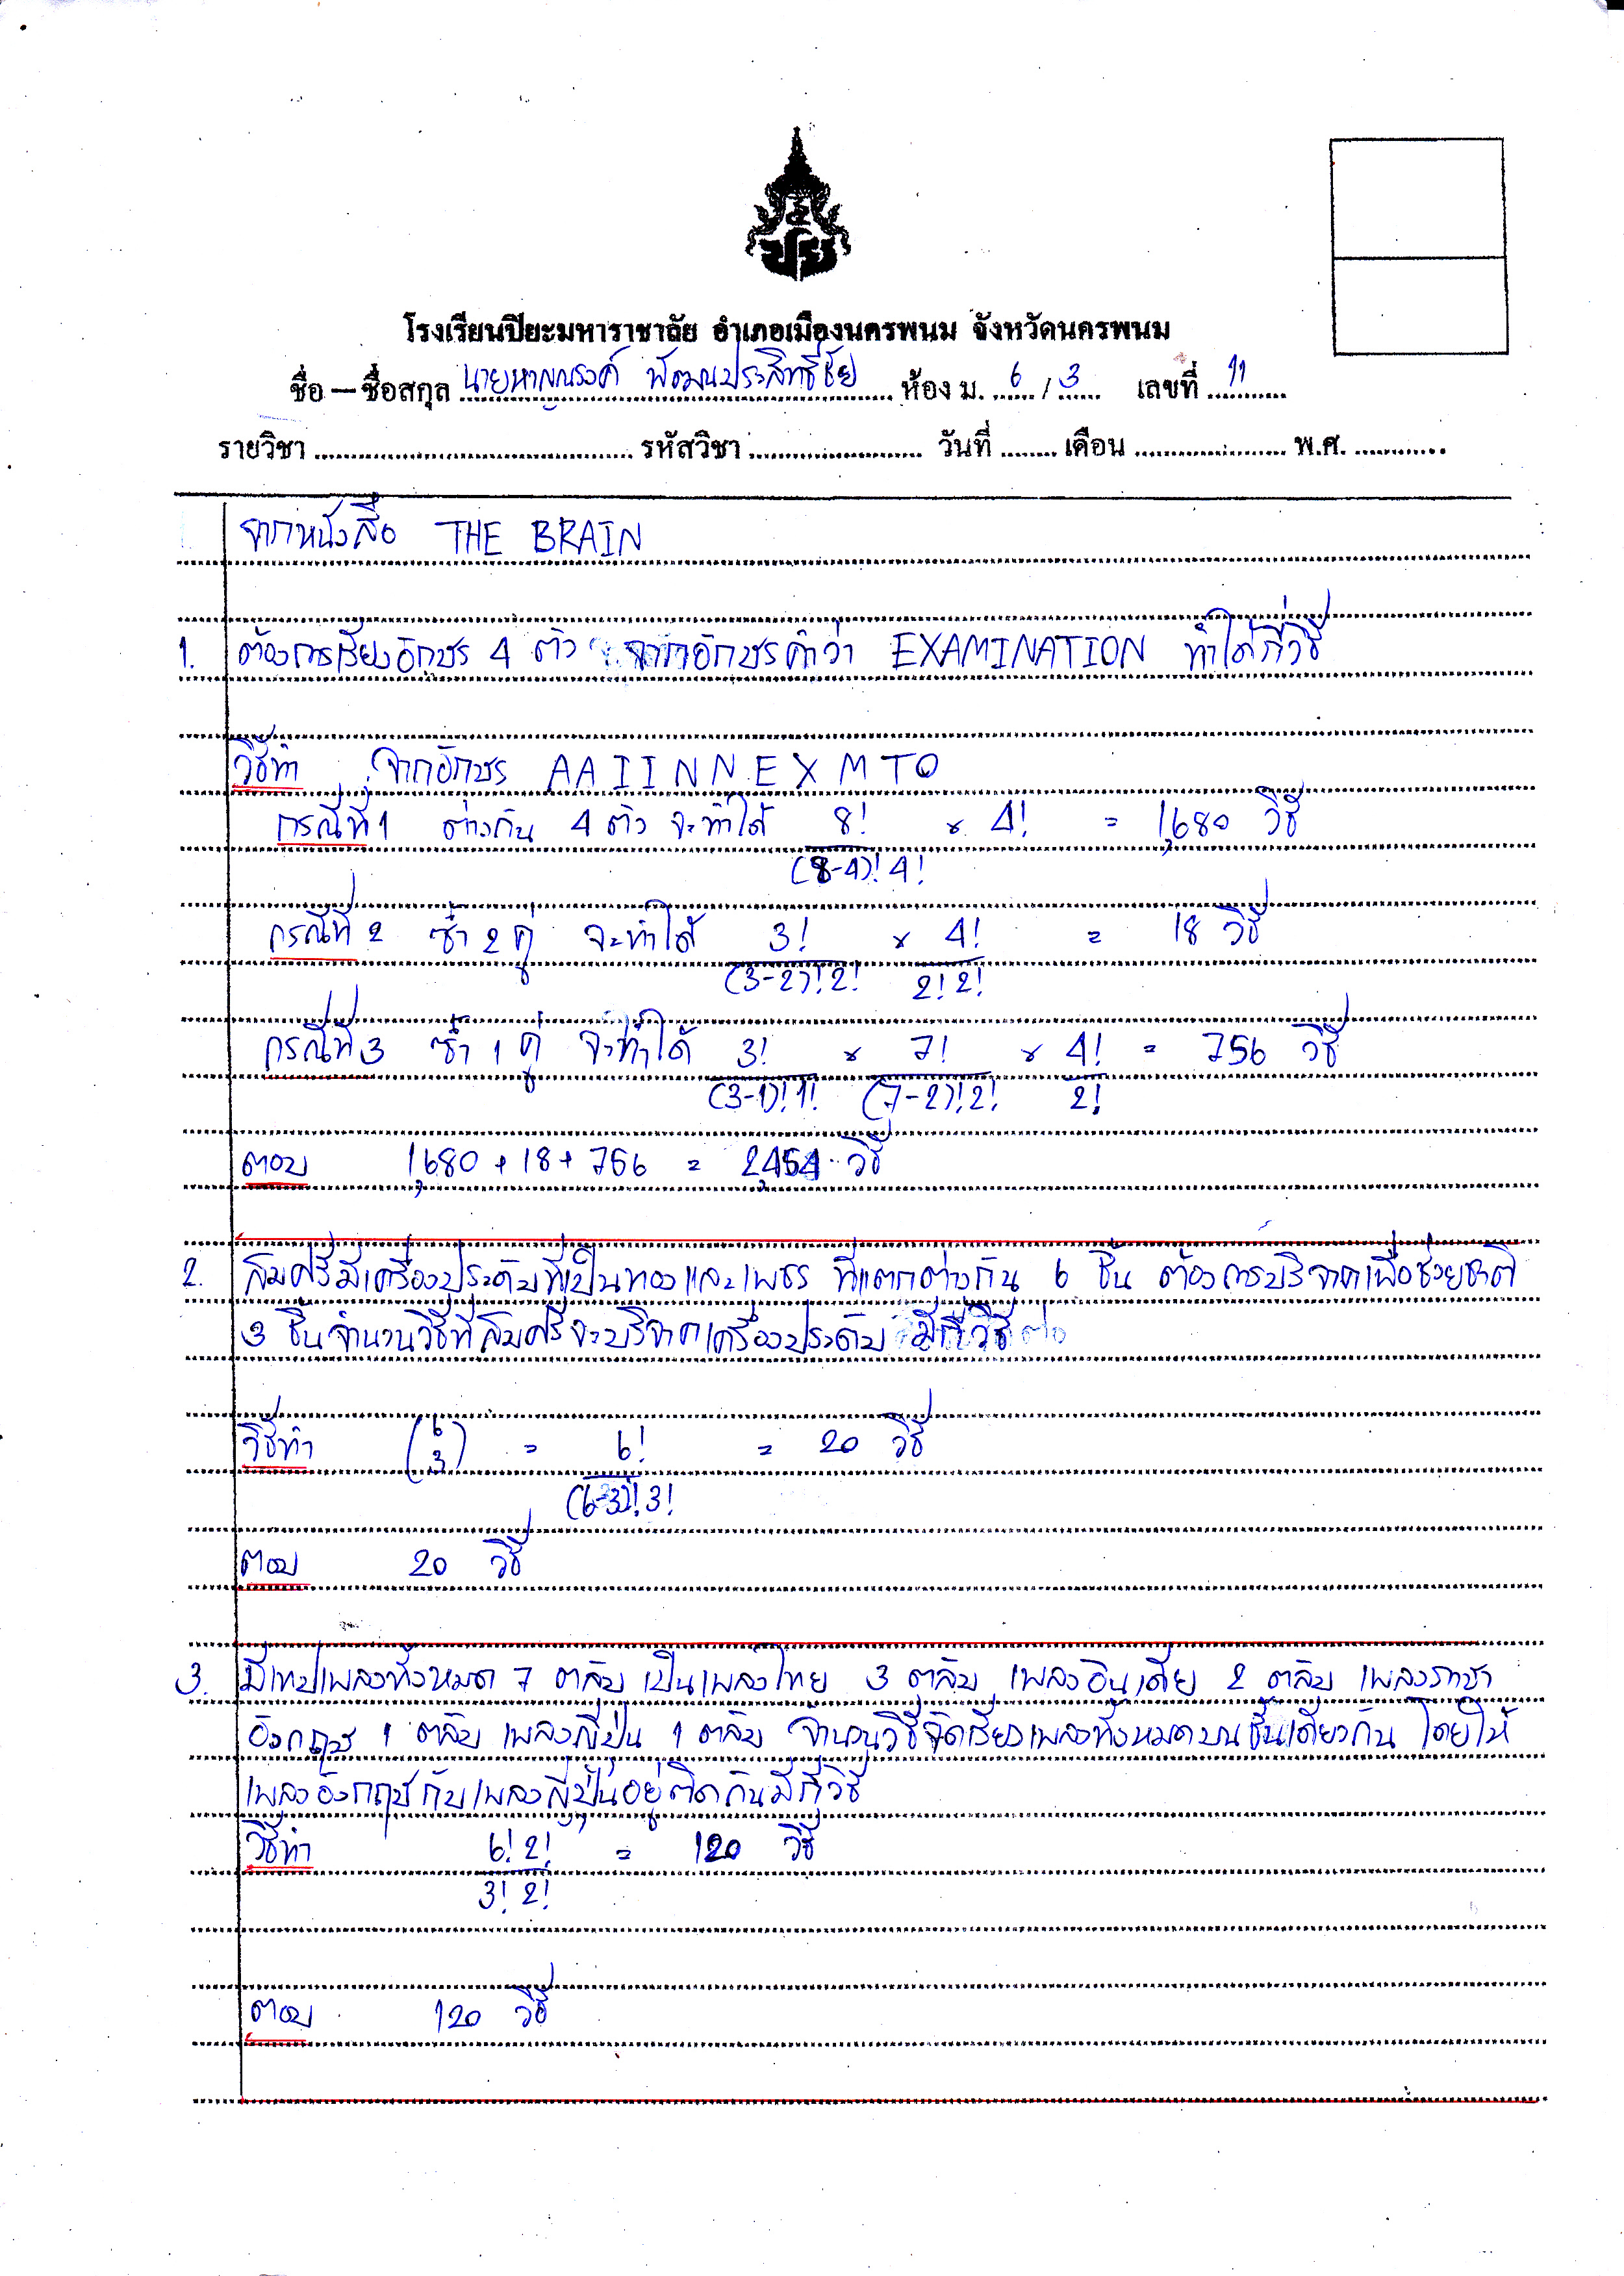 โรงเรียนปิยะมหาราชาลัย อำเภอเมืองนครพนม จังหวัดนครพนม
ชื่อ – ชื่อสกุล นายหาญณรงค์ พัฒนประสิทธิ์ชัย ห้อง ม. 6 / 3 เลขที่ 11
รายวิชา ........ รหัสวิชา ........ วันที่ ........ เดือน ........ พ.ศ. ........
จากหนังสือ THE BRAIN
1. ต้องการเรียงอักษร 4 ตัว จากอักษรคำว่า EXAMINATION ทำได้กี่วิธี
วิธีทำ จากอักษร A A I I N N E X M T O
กรณีที่ 1 ต่างกัน 4 ตัว จะทำได้ 8! × 4! = 1,680 วิธี
(8-4)! 4!
กรณีที่ 2 ซ้ำ 2 คู่ จะทำได้ 3! × 4! = 18 วิธี
(3-2)! 2! 2! 2!
กรณีที่ 3 ซ้ำ 1 คู่ จะทำได้ 3! × 7! × 4! = 756 วิธี
(3-1)! 1! (7-2)! 2! 2!
ตอบ 1,680 + 18 + 756 = 2,454 วิธี
2. สมศรีมีเครื่องประดับที่เป็นทองและเพชร ที่แตกต่างกัน 6 ชิ้น ต้องการบริจาคเพื่อช่วยชาติ
3 ชิ้น จำนวนวิธีที่สมศรีจะบริจาคเครื่องประดับ มีกี่วิธี
วิธีทำ (6 3) = 6! = 20 วิธี
(6-3)! 3!
ตอบ 20 วิธี
3. มีเทปเพลงทั้งหมด 7 ตลับ เป็นเพลงไทย 3 ตลับ เพลงอินเดีย 2 ตลับ เพลงภาษา
อังกฤษ 1 ตลับ เพลงญี่ปุ่น 1 ตลับ จำนวนวิธีจัดเรียงเพลงทั้งหมดบนชั้นเดียวกัน โดยให้
เพลงอังกฤษกับเพลงญี่ปุ่นอยู่ติดกันมีกี่วิธี
วิธีทำ 6! 2! = 120 วิธี
3! 2!
ตอบ 120 วิธี